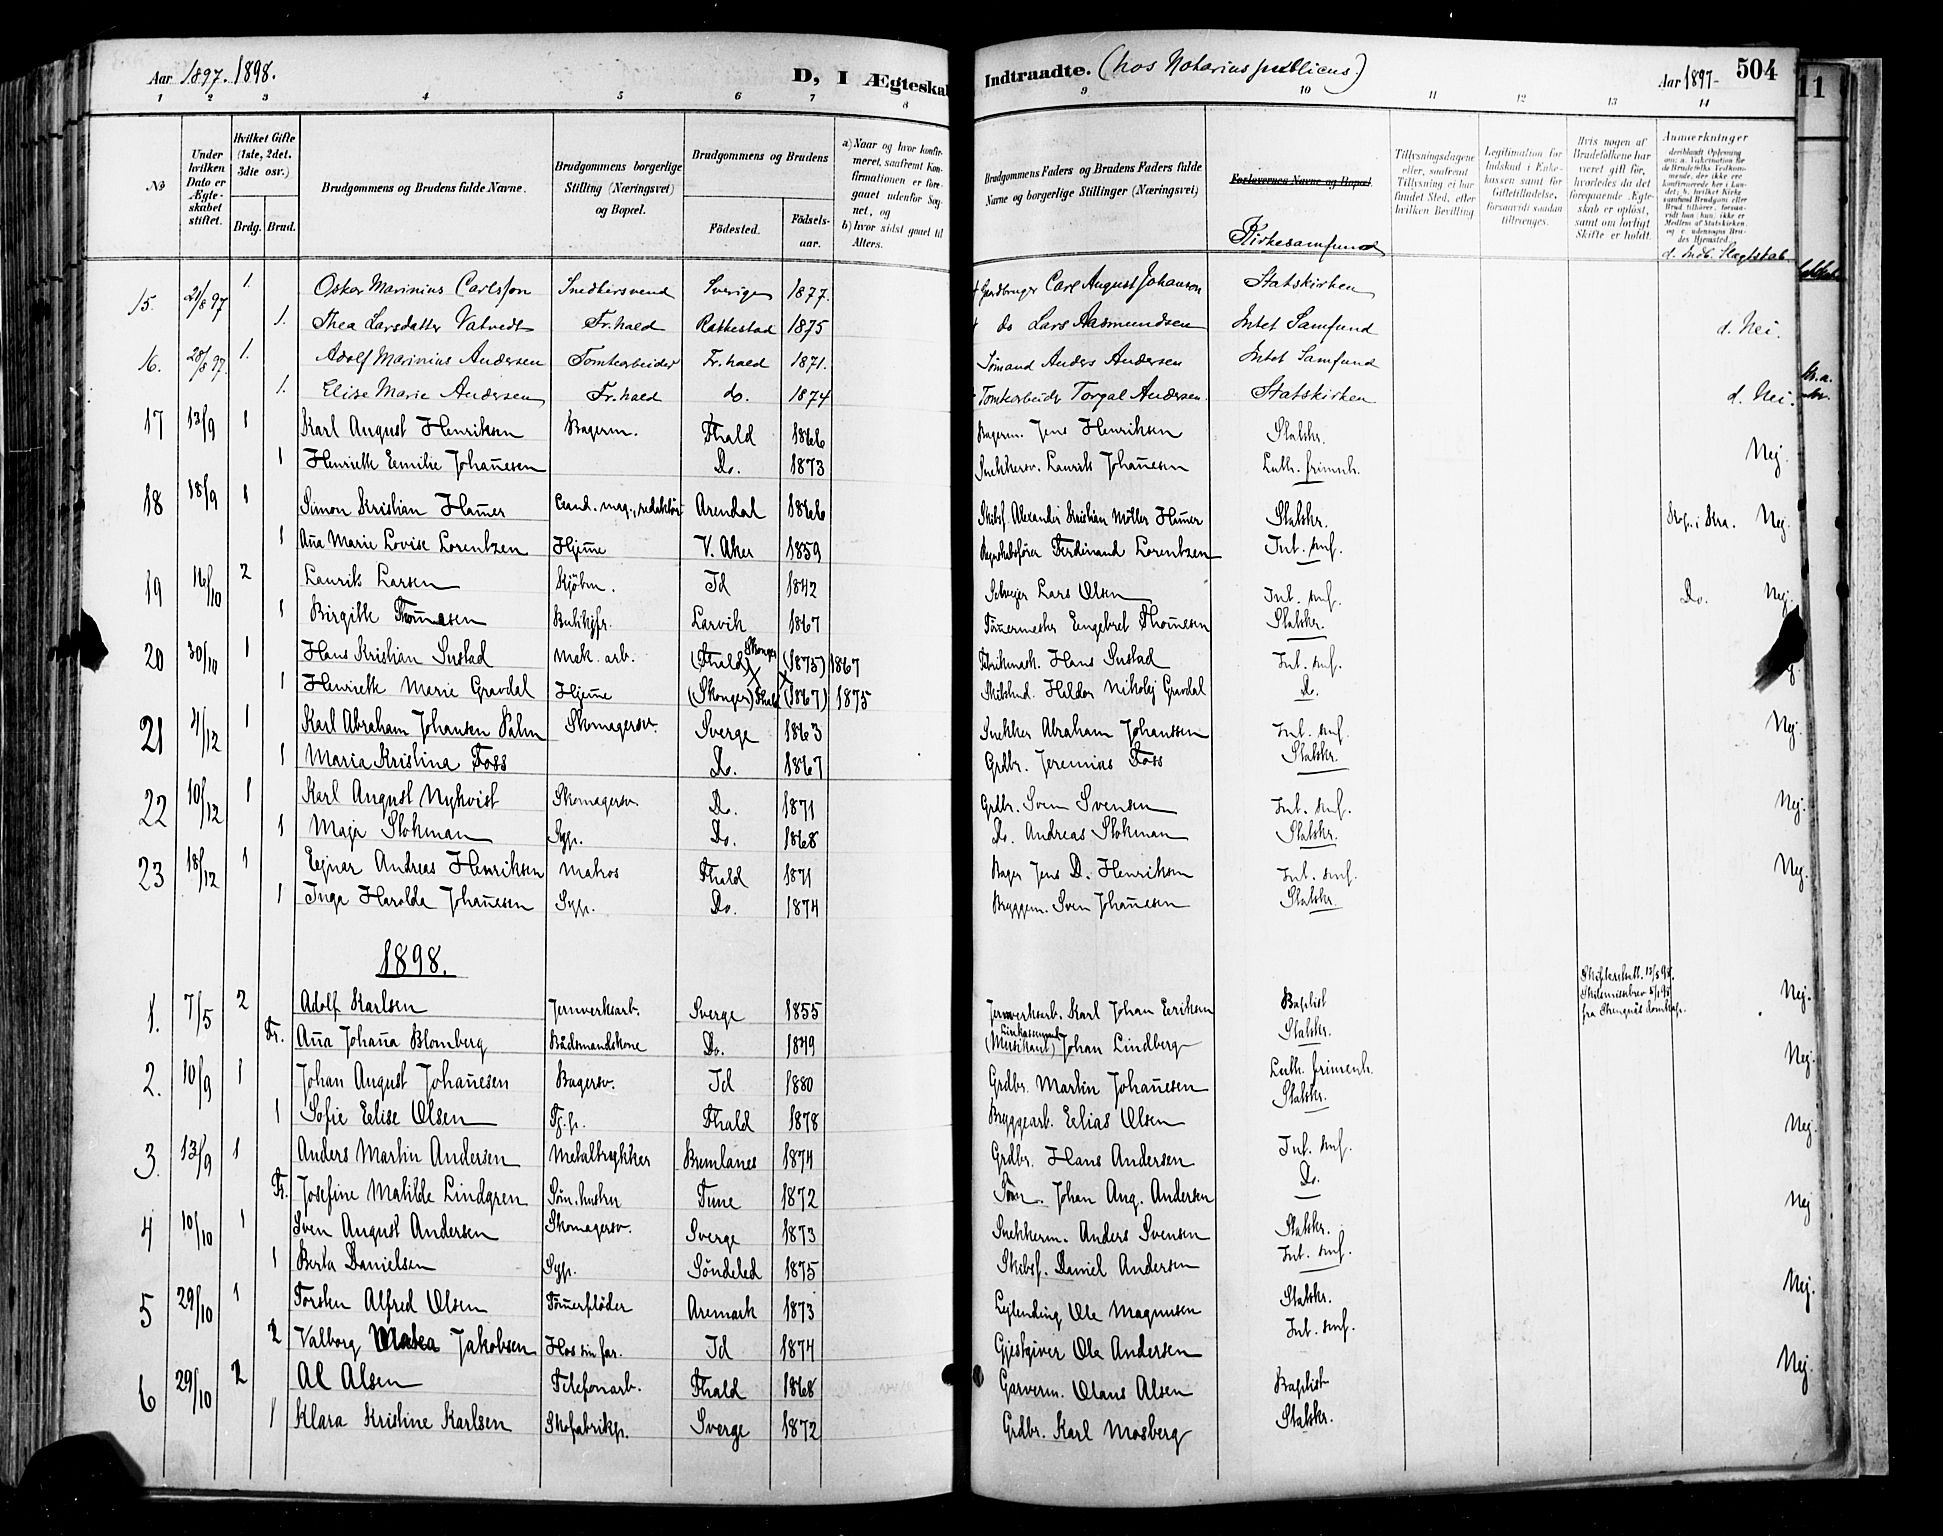 Aar 1897. 1898.
D, I Ægteskab
Indtraadte. (hos Notarius publicus)
Aar 1897-
504
11
1 2 3 4 5 6 7 8
9 10 11 12 13 14
No
Under hvilken Dato er Ægteskabet stiftet.
Hvilket Gifte (1ste, 2det, 3die osv.)
Brdg. Brud.
Brudgommens og Brudens fulde Navne.
Brudgommens borgerlige Stilling (Næringsvei) og Bopæl.
Brudgommens og Brudens
Fødested. Fødselsaar.
a) Naar og hvor konfirmeret, saafremt Konfirmationen er foregaaet udenfor Sognet, og b) hvor sidst gaaet til Alters.
Brudgommens Faders og Brudens Faders fulde Navne og borgerlige Stillinger (Næringsvei)
Forlovernes Navne og Bopæl.
Kirkesamfund
Tillysningsdagene eller, saafremt Tillysning ei har fundet Sted, efter hvilken Bevilling
Legitimation for Indskud i Enkekassen samt for Giftetilladelse, forsaavidt saadan tiltrænges.
Hvis nogen af Brudefolkene har været gift før, hvorledes da det foregaaende Ægteskab er opløst, samt om lovligt Skifte er holdt.
Anmerkninger
d. Indb. Slegtskab
15. 21/8 97 1. Oskar Marinius Carlsson Snedkersvend Sverige 1877. Gaardbruger Carl August Johanson Statskirken
1. Thea Larsdatter Vatvedt Fr.hald Rakkestad 1875 do Lars Aasmundsen Intet Samfund d. Nei.
16. 28/8 97. 1. Adolf Marinius Andersen Tomtearbeider Fr.hald 1871. Sømand Anders Andersen Intet Samfund
1. Elise Marie Andersen Fr.hald do. 1874 Tomtearbeider Torgal Andersen. Statskirken d. Nei.
17 13/9 1 Karl August Henriksen Bagerm. Fhald 1866 Bagerm. Jens Henriksen Statskr.
1 Henriette Emilie Johan̄esen Do. 1873 Snekkersv. Laurits Johan̄esen Luth. frimenh. Nej.
18 18/9 1 Simon Kristian Ham̄er Cand. mag., redaktør Arendal 1866 Skibsf. Alexander Kristian Möller Ham̄er Statskr. Nej.
1 An̄a Marie Lovise Lorentzen Hjem̄e V. Aker 1859 Regnskabsfører Ferdinand Lorentzen Int. smf.
19 16/10 2 Laurits Larsen Kjöbm. Id 1842 Selvejer Lars Olsen Int. smf. Do. Nej.
1 Birgitte Thom̄esen Butikjfr. Larvik 1867 Töm̄ermester Engebret Thom̄esen Statskr.
20 30/10 1 Hans Kristian Sustad Mek. arb. (Fhald) Skonger (1875) 1867 Fabrikmask. Hans Sustad Int. smf.
1 Henriette Marie Gravdal Hjem̄e (Skonger) Fhald (1867) 1875 Hildor Nikolaj Gravdal Do.
21 4/12 1 Karl Abraham Johansen Palm Skomagersv. Sverge 1863 Snekker Abraham Johanssen Int. smf. Nej.
1 Maria Kristina Foss Do. 1867 Grdbr. Jeremias Foss Statskr.
22 10/12 1 Karl August Nykvist Skomagersv. Do. 1871 Grdbr. Sven Svensen Int. smf. Nej.
1 Maja Stokman Syp. Do. 1868 Do. Andreas Stokman Statskr.
23 18/12 1 Ejnar Andreas Henriksen Matros Fhald 1871 Bager Jens D. Henriksen Int. smf. Nej.
1 Inga Harolda Johan̄esen Syp. Do. 1874 Bryggem. Sven Johan̄esen Statskr.
1898.
1. 7/5 2 Adolf Karlsen Jernverksarb. Sverge 1855 Jernverksarb. Karl Johan Eriksen Baptist Nej.
Fr. An̄a Johan̄a Blomberg Bådsmandskone Do. 1849 (Musikant) Johan Lindberg Statskr.
2. 10/9 1 Johan August Johan̄esen Bagersv. Id 1880 Grdbr. Martin Johan̄esen Luth. frimenh. Nej.
1 Sofie Elise Olsen Tj.p. Fhald 1878 Bryggearb. Elias Olsen Statskr.
3. 13/9 1 Anders Martin Andersen Metaltrykker Bremlanes 1874 Grdbr. Hans Andersen Int. smf. Nej.
Fr. Josefine Matilde Lindgren Søm. hustru Tune 1872 Johan Aug. Andersen Do.
4 10/10 1 Sven August Andersen Skomagersv. Sverge 1873 Snekkerm. Anders Svensen Statskr. Nej
1 Berta Danielsen Syp. Söndeled 1875 Skibsf. Daniel Andersen Int. smf.
5 29/10 1 Torsten Alfred Olsen Töm̄erflöder Aremark 1873 Lejlending Ole Magnusen Statskr. Nej.
2 Valborg Matea Jakobsen Hos sin far. Id 1874 Gjestgiver Ole Andersen Int. smf.
6 29/10 2 Al Alsen Telefonarb. Fhald 1868 Garverm. Olaus Alsen Baptist Nej.
1 Klara Kristine Karlsen Skofabrikp. Sverge 1872 Grdbr. Karl Mosberg Statskr.